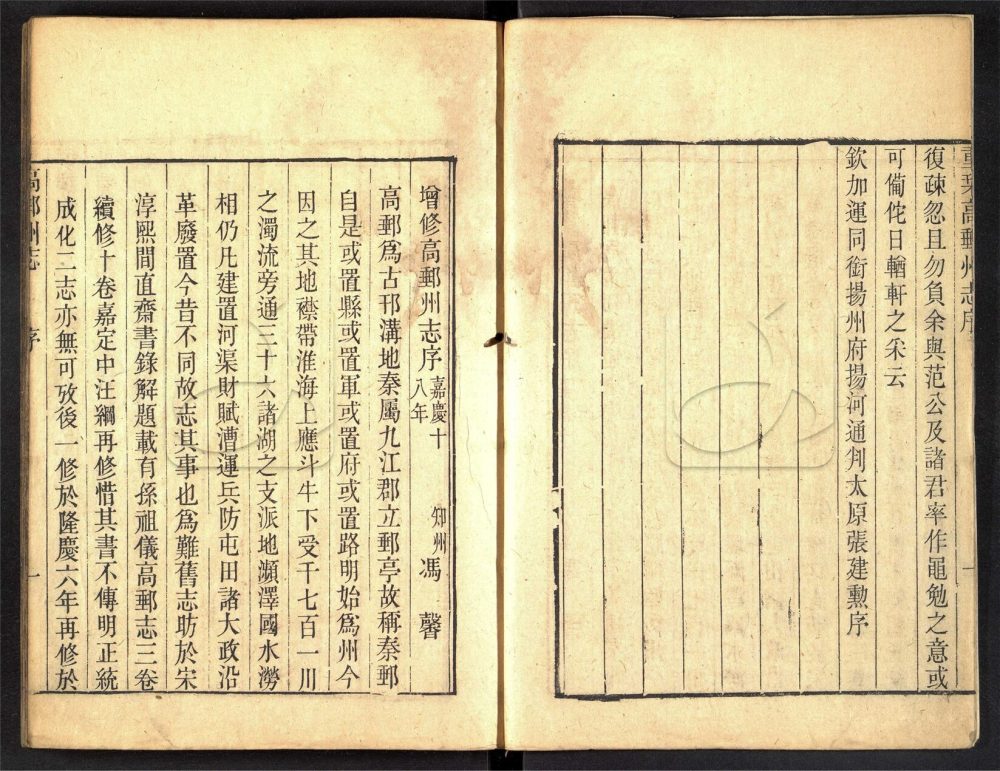 重栞高郵州志序
復疎忽且勿負余與范公及諸君率作黽勉之意或
可僃侘日輶軒之采云
欽加運同銜揚州府揚河通判太原張建勲序
一
增修高郵州志序 嘉慶十八年 知州 馮 馨
高郵爲古邗溝地秦屬九江郡立郵亭故稱秦郵
自是或置縣或置軍或置府或置路明始爲州今
因之其地襟帶淮海上應斗牛下受千七百一川
之濁流旁通三十六諸湖之支派地瀕澤國水澇
相仍凡建置河渠財賦漕運兵防屯田諸大政沿
革廢置今昔不同故志其事也爲難舊志昉於宋
淳熙間直齋書錄解題載有孫祖儀高郵志三卷
續修十卷嘉定中汪綱再修惜其書不傳明正統
成化二志亦無可攷後一修於隆慶六年再修於
高郵州志 序 一